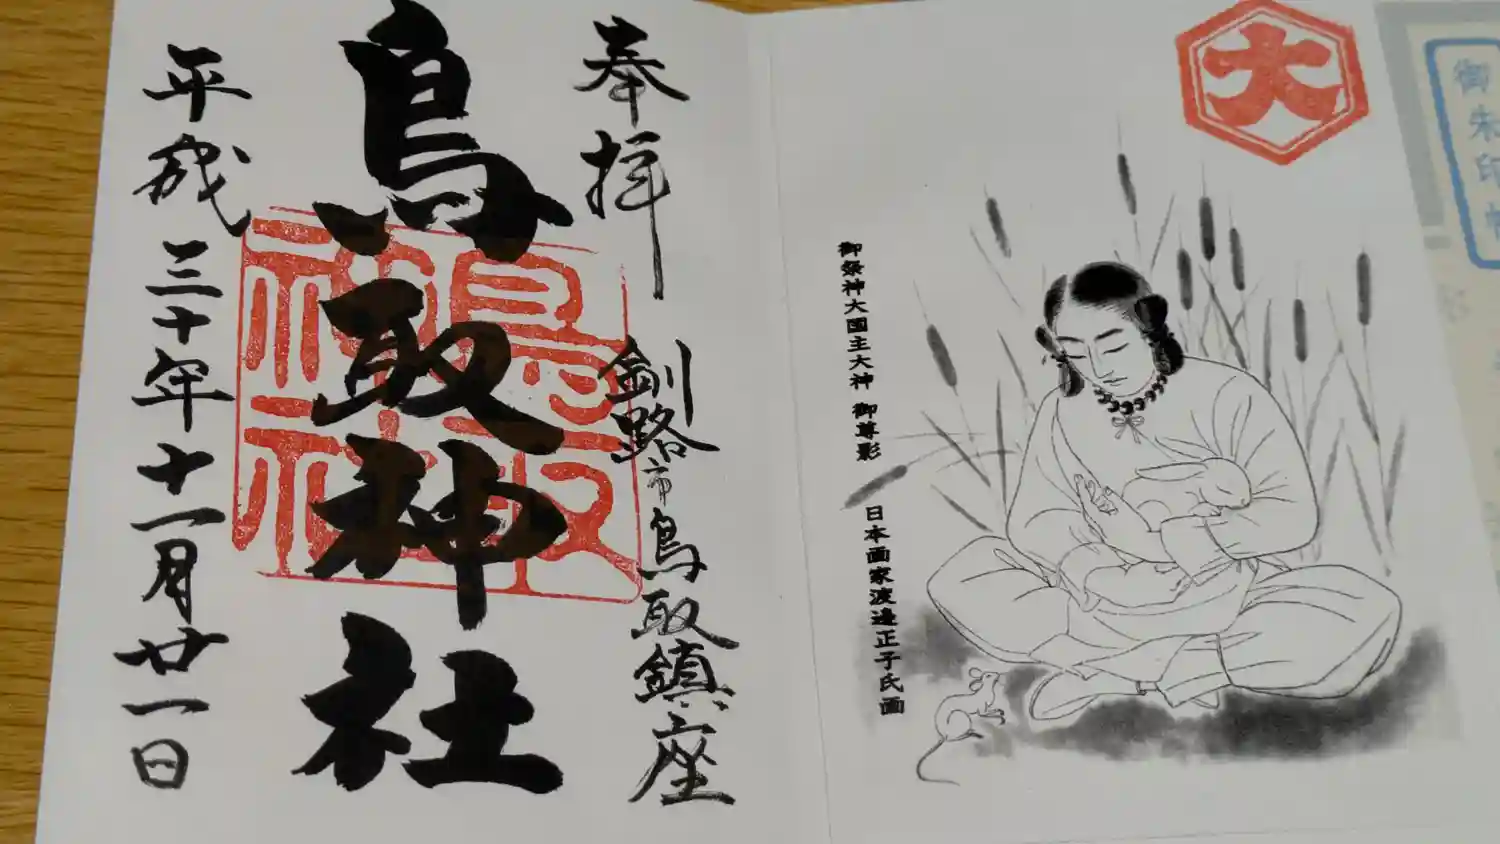 奉拝
釧路市鳥取鎮座
鳥取神社
鳥取神社
平成三十年十一月廿一日
大
御祭神大国主大神 御尊影
日本画家渡邊正子氏画
御朱印帳